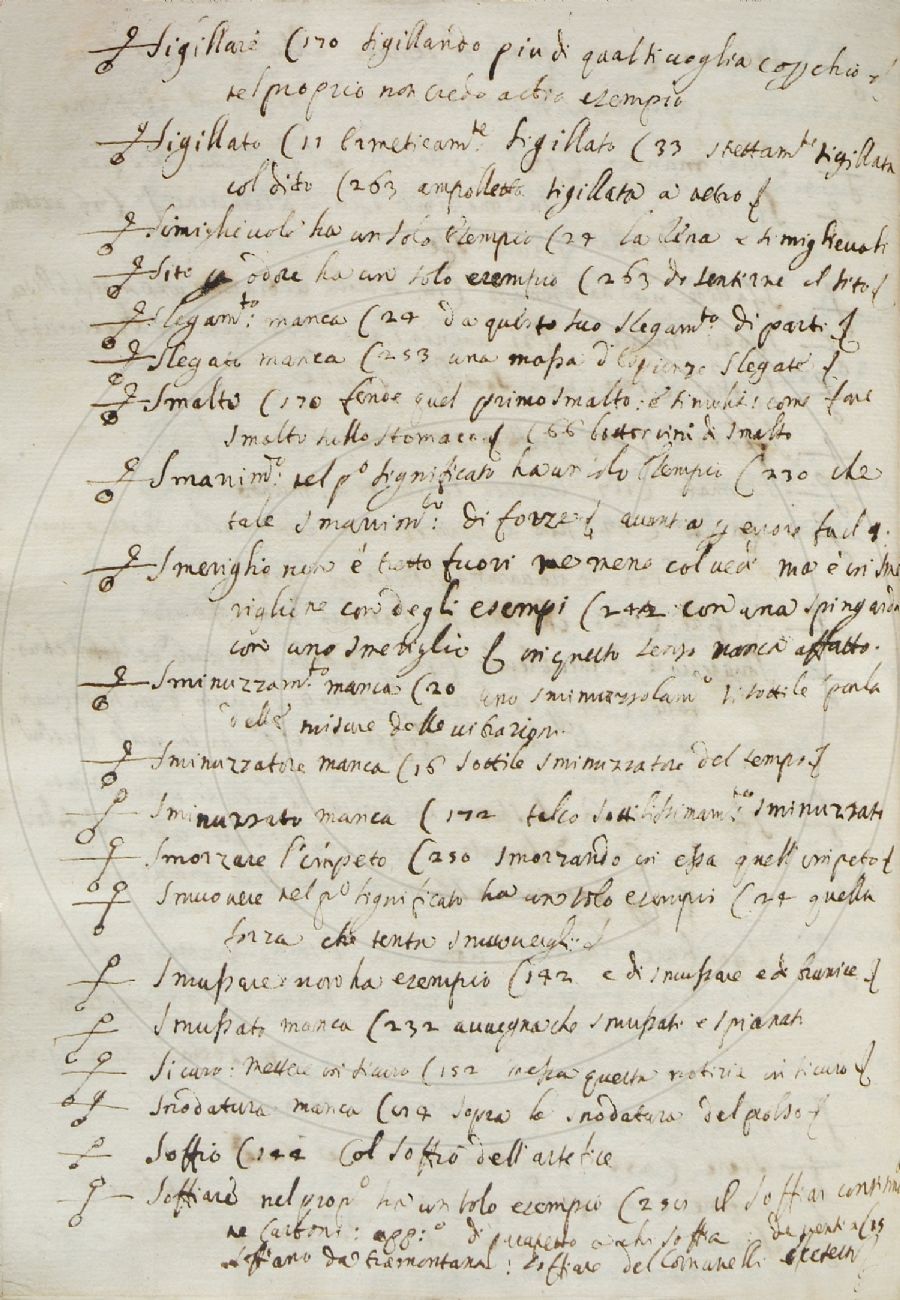 Sigillare (170 sigillando piu di qualsivoglia coperchio
nel proprio non credo altro esempio
Sigillato (11 ermeticamte: sigillato (33 strettamte sigillata
col dito (263 ampolletta sigillata a vetro
Simiglievole ha un solo esempio (24 la rena e simiglievoli
Sito odore ha un solo esempio (263 di sentirne il sito
Slegamto: manca (24 da questo suo slegamto: di parti
Slegato manca (253 una massa di slegate
Smalto (170 fende quel primo smalto: e come
smalto sullo stomaco (66 bottoncini di smalto
Smarimto: nel po significato ha un solo esempio (230 che
tale smarimto: di forze
Smeriglio non è tutto fuori ne meno col ma è in sme
riglione con degli esempi (242 con una spingarda
con uno smeriglio in questo senso manca affatto.
Sminuzzamto: manca (20 uno sminuzzolamo si sottile
delle misure delle vibrazioni
Sminuzzatore manca (16 sottile sminuzzatore del tempo
Sminuzzato manca (172 talco sottilissimamte: sminuzzato
Smorzare l'impeto (250 smorzando in essa quell'impeto
Smuovere nel po significato ha un solo esempio (24 quella
forza che tenta smuovergli:
Smussare non ha esempio (142 e di smussare e di brunire
Smussato manca (232 avvegnache smussati e spianati
Sicuro: Mettere in sicuro (152 messa questa notizia in sicuro
Snodatura manca (14 sopra la snodatura del polso
Soffio (144 Col soffio dell'artefice
Soffiare nel propo ha un solo esempio (250 il soffiar continuo
ne carboni: a chi soffia
soffiano da tramontana: soffiare del